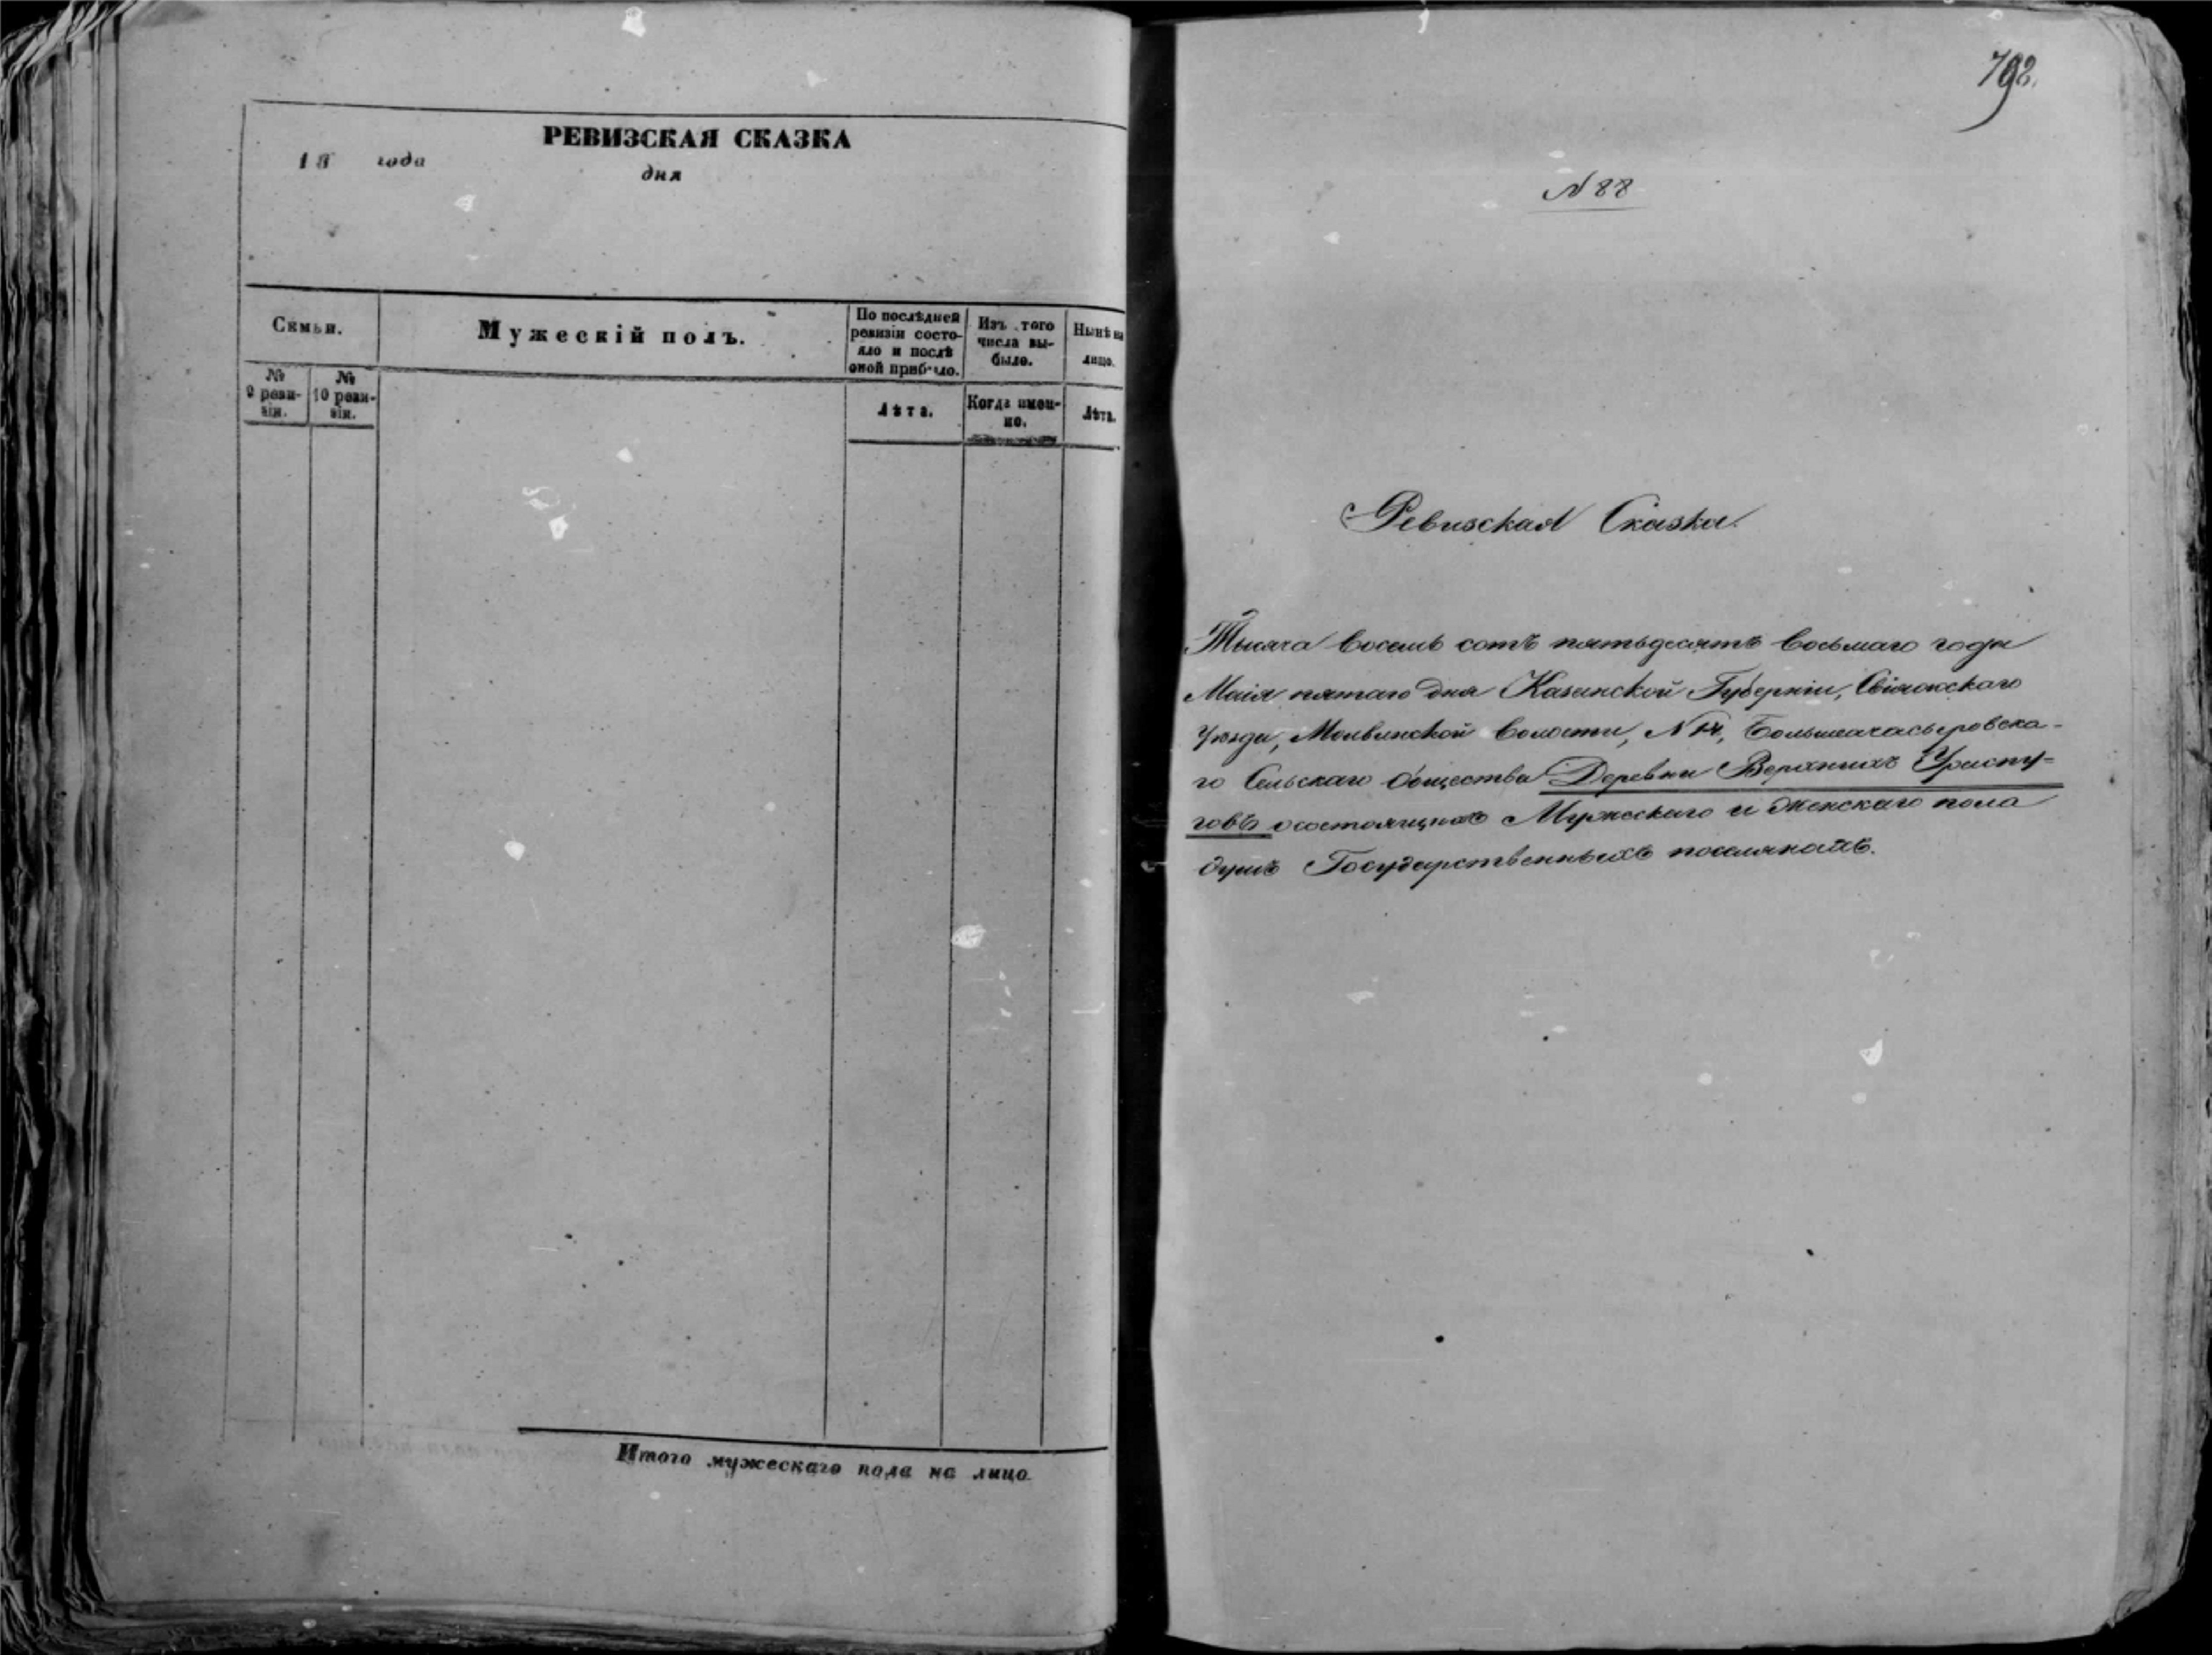 РЕВИЗСКАЯ СКАЗКА
18 года
дня
Семьи.
Мужескій полъ.
По послѣдней ревизіи состо-
яло и послѣ оной прибыло.
Изъ того числа вы-
было.
Нынѣ на лицо.
№ 9 реви-
зіи.
№ 10 реви-
зіи.
Лѣта.
Когда имен-
но.
Лѣта.
Итого мужескаго пола на лицо
792.
N 88
Ревизская Сказка.
Тысяча восемь сотъ пятьдесятъ восьмаго года
Маія пятаго дня Казанской Губерніи, Свіяжскаго
Уѣзда, Молвинской волости, N 14,
го Сельскаго общества Деревни Верхнихъ
о состоящихъ Мужескаго и Женскаго пола
душъ Государственныхъ поселянахъ.